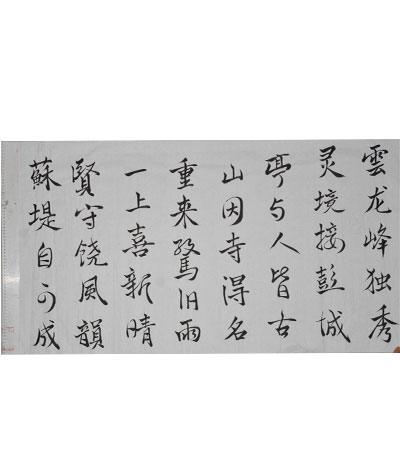 雲龙峰独秀
灵境接彭城
亭与人皆古
山因寺得名
重来驚旧雨
一上喜新晴
賢守饶風韻
蘇堤自可成